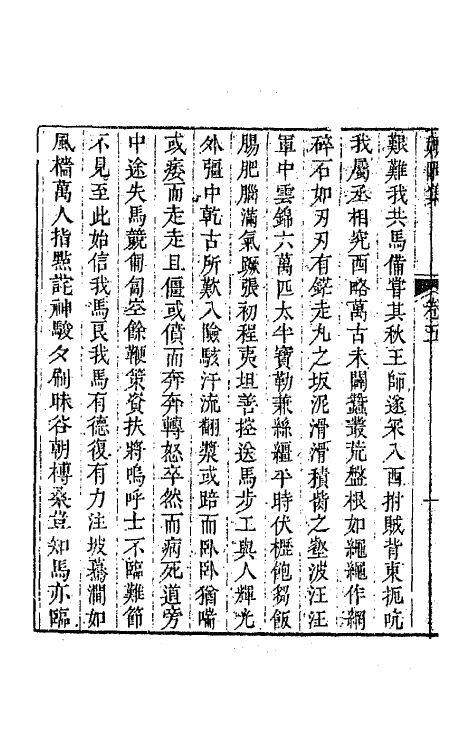 集
卷五
一
艱難我共馬備嘗其秋王師遂罙入酉拊賊背東扼吭
我屬丞相究西略萬古未闢蠶叢荒盤根如繩繩作網
碎石如刃刃有鋩走丸之坂泥滑滑積崳之壑波汪汪
軍中雲錦六萬匹太半寶勒兼絲繮平時伏櫪飽芻飯
腸肥腦滿氣蹶張初程夷坦善控送馬步工與人輝光
外彊中乾古所歎入險駭汗流翻漿或踣而臥臥猶喘
或痿而走走且僵或僨而奔奔轉怒卒然而病死道旁
中途失馬競匍匐空餘鞭策資扶將嗚呼士不臨難節
不見至此始信我馬良我馬有德復有力注坡驀澗如
風檣萬人指㸃詫神駿夕刷昧谷朝榑桑豈知馬亦臨